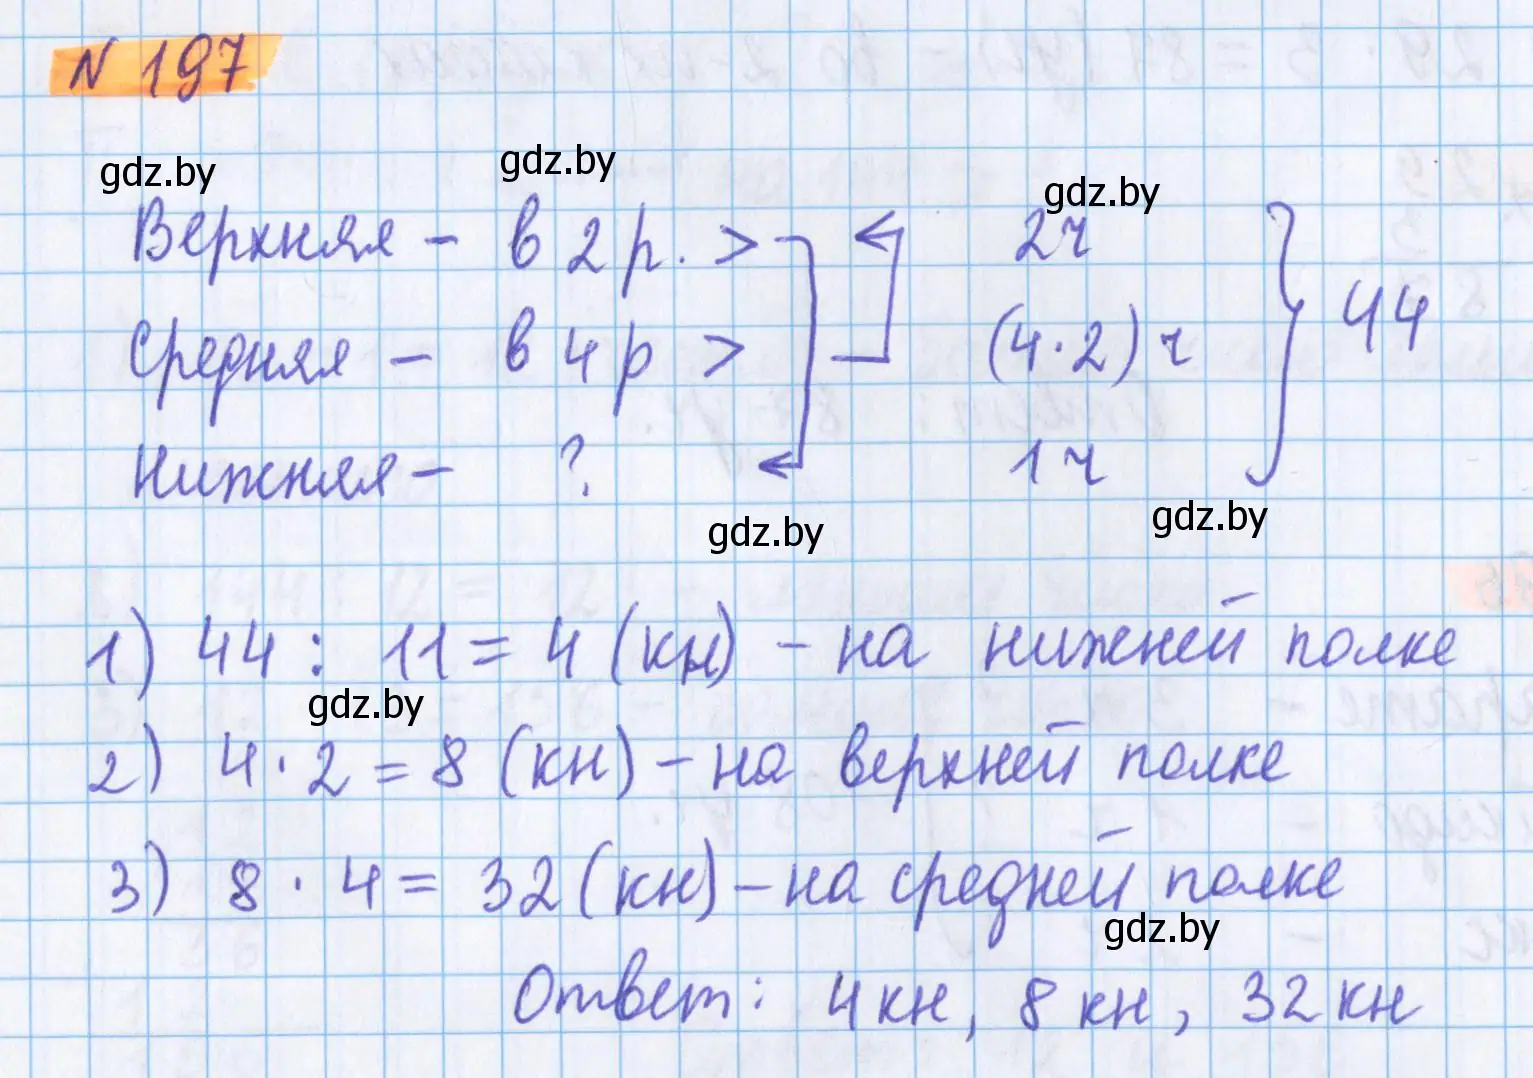 N 197
gdz.by gdz.by gdz.by
Верхняя – в 2 р. > 2ч
Средняя – в 4 р > (4·2) ч 44
Нижняя – ? 1ч
gdz.by gdz.by
1) 44 : 11 = 4 (кн) – на нижней полке
gdz.by
2) 4 · 2 = 8 (кн) – на верхней полке
3) 8 · 4 = 32 (кн) – на средней полке
gdz.by
Ответ: 4 кн, 8 кн, 32 кн